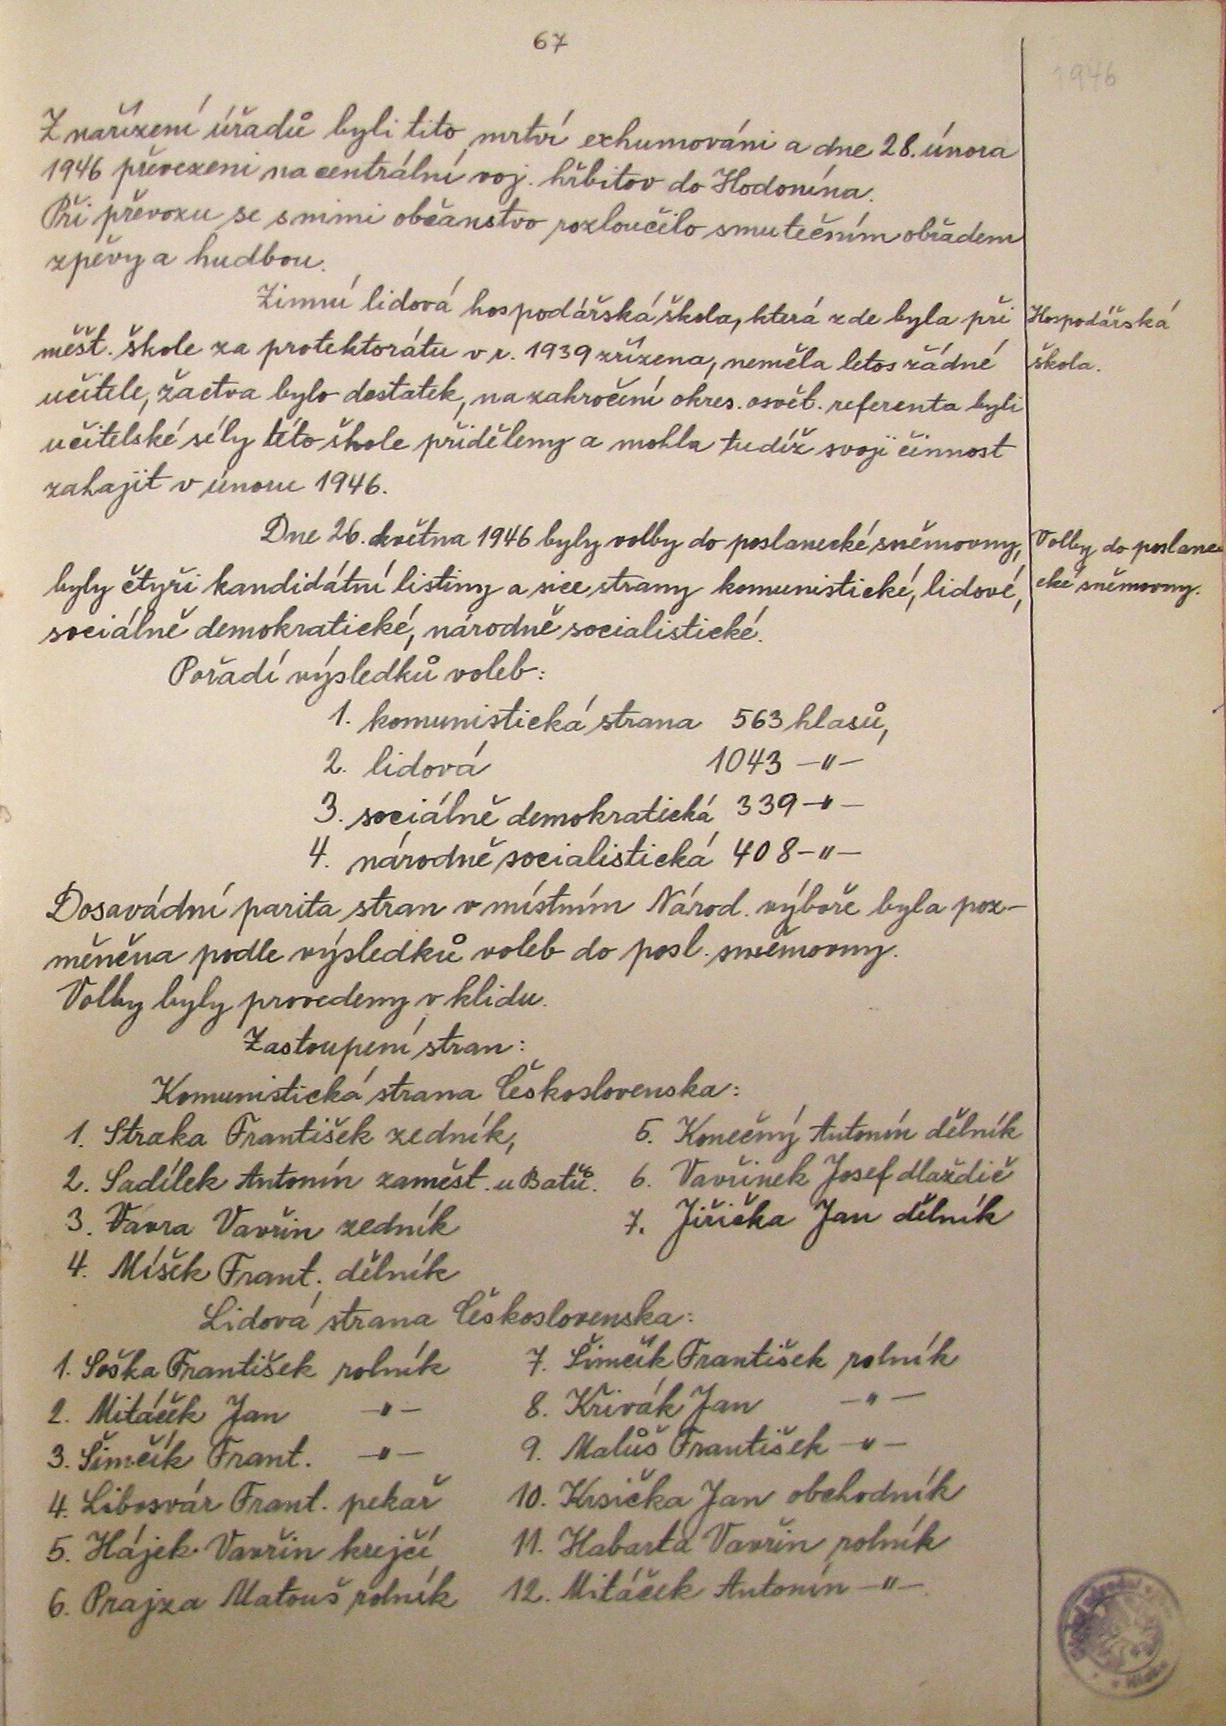 67
1946
Z nařízení úřadů byli tito mrtví exhumováni a dne 28. února
1946 převezeni na centrální voj. hřbitov do Hodonína.
Při převozu se s nimi občanstvo rozloučilo smutečním obřadem
zpěvy a hudbou.
Zimní lidová hospodářská škola, která zde byla při
měšt. škole za protektorátu v r. 1939 zřízena, neměla letos žádné
učitele, žactva bylo dostatek, na zakročení okres. osvět. referenta byli
učitelské síly této škole přiděleny a mohla tudíž svoji činnost
zahajit v únoru 1946.
Hospodářská
škola.
Dne 26. května 1946 byly volby do poslanecké sněmovny,
byly čtyři kandidátní listiny a sice strany komunistické, lidové,
sociálně demokratické, národně socialistické.
Volby do poslane-
cké sněmovny.
Pořadí výsledků voleb:
1. komunistická strana 563 hlasů,
2. lidová 1043 -"-
3. sociálně demokratická 339 -"-
4. národně socialistická 408 -"-
Dosavádní parita stran v místním Národ. výboře byla poz-
měněna podle výsledků voleb do posl. sněmovny.
Volby byly provedeny v klidu.
Zastoupení stran:
Komunistická strana Československa:
1. Straka František zedník, 5. Konečný Antonín dělník
2. Sadílek Antonín zaměst. u Batě. 6. Vavřinek Josef dlaždič
3. Vávra Vavřin zedník 7. Jiřička Jan dělník
4. Míšek Frant. dělník
Lidová strana Československa:
1. Soška František rolník 7. Šimčík František rolník
2. Mitáček Jan -"- 8. Křivák Jan -"-
3. Šimčík Frant. -"- 9. Malůš František -"-
4. Libosvár Frant. pekař 10. Krsička Jan obchodník
5. Hájek Vavřin krejčí 11. Habarta Vavřin rolník
6. Prajza Matouš rolník 12. Mitáček Antonín -"-